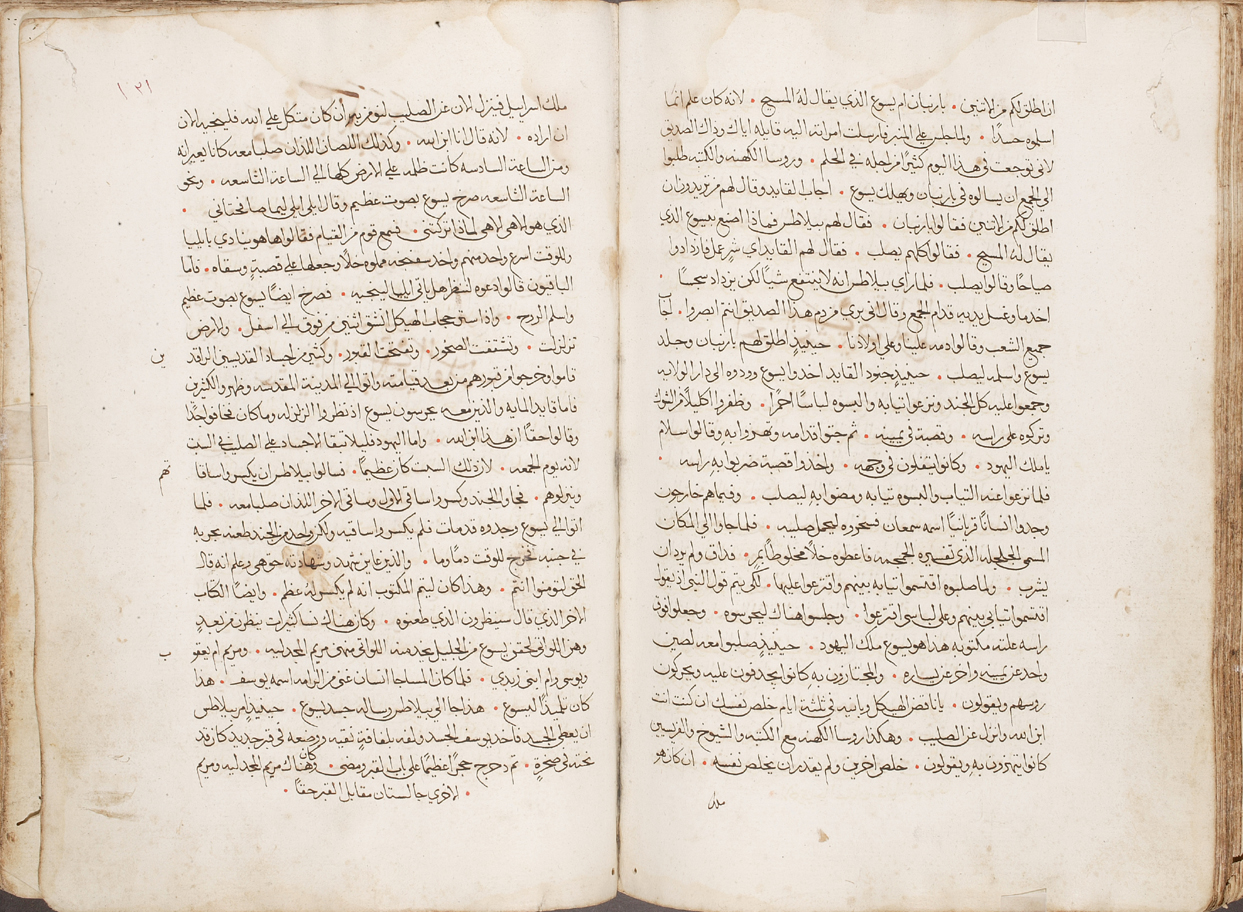 ان اطلق لكم من الاثنين • بارنبان ام يسوع الذي يقال له المسيح • لانه كان علم انما
اسلموه حسدًا • ولما جلس على المنبر فارسلت امراته اليه قايله اياك وذاك الصديق
لاني توجعت في هذا اليوم كثيرًا من اجله في الحلم • وروسا الكهنه والكتبه طلبوا
الى الجمع ان يسالوه في بارنبان ويهلك يسوع • اجاب القايد وقال لهم من تريدون ان
اطلق لكم من الاثنين فقالوا بارنبان • فقال لهم بيلاطس فماذا اصنع بيسوع الذي
يقال له المسيح • فقالوا كلهم يصلب • فقال لهم القايد اي شر عمل فازدادوا
صياحًا وقالوا يصلب • فلما راي بيلاطس انه لا ينتفع شيًا لكن يزداد سجسًا •
اخد ما وغسل يديه قدام الجمع وقال اني بري من دم هذا الصديق انتم ابصروا • اجاب
جميع الشعب وقالوا دمه علينا وعلى اولادنا • حينيذٍ اطلق لهم بارنبان وجلد
يسوع واسلمه ليصلب • حينيذٍ جنود القايد اخدوا يسوع وردوه الى دار الولايه
وجمعوا عليه كل الجند ونزعوا تيابه والبسوه لباسًا احمرًا • وظفروا اكليلًا من الشوك
وتركوه على راسه • وقصبة في يمينه • ثم جتوا قدامه وتهزوا به وقالوا سلام
يا ملك اليهود • وكانوا يتفلون في وجهه • واخذوا قصبة ضربوا به راسه •
فلما نزعوا عنه التياب والبسوه تيابه ومضوا به ليصلب • وفيما هم خارجون
وجدوا انسانًا قريانيًا اسمه سمعان فسخروه ليحمل صليبه • فلما جاوا الى المكان
المسمى الجلجله الذي تفسيره الجمجمه فاعطوه خلًا مخلوطًا بمرٍ • فداق ولم يرد ان
يشرب • ولما صلبوه اقتسموا تيابه بينهم واقترعوا عليها • لكي يتم قول النبي اذ يقول
اقتسموا تيابي بينهم وعلى لباسي اقترعوا • وجلسوا هناك ليحرسوه • وجعلوا فوق
راسه علته مكتوبه هذا هو يسوع ملك اليهود • حينيذٍ صلبوا معه لصين
واحد عن يمينه واخر عن يساره • والمجتازون به كانوا يجدفون عليه ويحركون
روسهم ويقولون • يا ناقض الهيكل وبانيه في تلثة ايام خلص نفسك ان كنت انت
ابن الله وانزل عن الصليب • وهكذا روسا الكهنه مع الكتبه والشيوخ والفريسين
كانوا يتهزون به ويقولون • خلص اخرين ولم يقدر ان يخلص نفسه • ان كان هو
ملك
١٢١
ملك اسراييل فينزل الان عن الصليب لنومن به أن كان متكل على الله فلينجيه الان
ان اراده • لانه قال انا ابن الله • وكذلك اللصان اللذان صلبا معه كانا يعيرانه
ومن الساعة السادسه كانت ظلمه على الارض كلها الى الساعة التاسعه • ونحو
الساعة التاسعه صرخ يسوع بصوت عظيم وقال ايلي ايلي ليما صافختاني •
الذي هو الاهي الاهي لماذا تركتني • فسمع قوم من القيام فقالوا ها هو ينادي بايليا
وللوقت اسرع واحد منهم واخد سفنجه فملوه خلًا وجعلها على قصبةٍ وسقاه • فاما
الباقيون قالوا دعوه لننظر هل ياتي ايليا لينجيه • فصرخ ايضًا يسوع بصوت عظيم
واسلم الروح • واذا ستر حجاب الهيكل انشق اثنين من فوق الى اسفل • والارض
تزلزلت • وتشققت الصخور • وتفتحت القبور • وكثير من اجساد القديسين الراقد
ين
قاموا وخرجوا من قبورهم من بعد قيامته واتوا الى المدينة المقدسه وظهروا لكثيرين
فاما قايد المايه والذين معه يحرسون يسوع اذ نظروا الزلزله وما كان فخافوا جدًا
وقالوا حقًا ان هذا ابن الله • واما اليهود فليلا تبقا الاجساد على الصليب في السبت
لانه يوم الجمعه • لان ذلك السبت كان عظيمًا • فسالوا بيلاطس ان يكسروا ساقا
تهم
وينزلوهم • فجاوا الجند وكسروا ساقي الاول وساقي الاخر اللذان صلبا معه • فلما
اتوا الى يسوع وجدوه قد مات فلم يكسروا ساقيه ولكن واحد من الجند طعنه بحربه
في جنبه فخرج للوقت دمًا وما • والذي عاين شهد وشهادته حق هي وعلم انه قال
الحق لتومنوا انتم • وهذا كان ليتم المكتوب انه لم يكسر له عظم • وايضًا الكتاب
الاخر الذي قال سينظرون الذي طعنوه • وكان هناك نسا كثيرات ينظرن من بعدٍ
وهن اللواتي لحقن يسوع من الجليل يخدمنه اللواتي منهن مريم المجدليه • ومريم ام يعقو
ب
ويوسى وام ابني زبدي • فلما كان المسا جا انسان غني من الرامه اسمه يوسف • هذا
كان تلميذًا ليسوع • هذا جا الى بيلاطس وساله جسد يسوع • حينيذٍ امر بيلاطس
ان يعطى الجسد فاخد يوسف الجسد ولفه بلفافةٍ نقيه ووضعه في قبر جديد كان قد
نحته في صخرةٍ • تم دحرج حجرًا عظيمًا على باب القبر ومضى • وكان هناك مريم المجدليه ومريم
• الاخرى جالستان مقابل القبر حقًا •